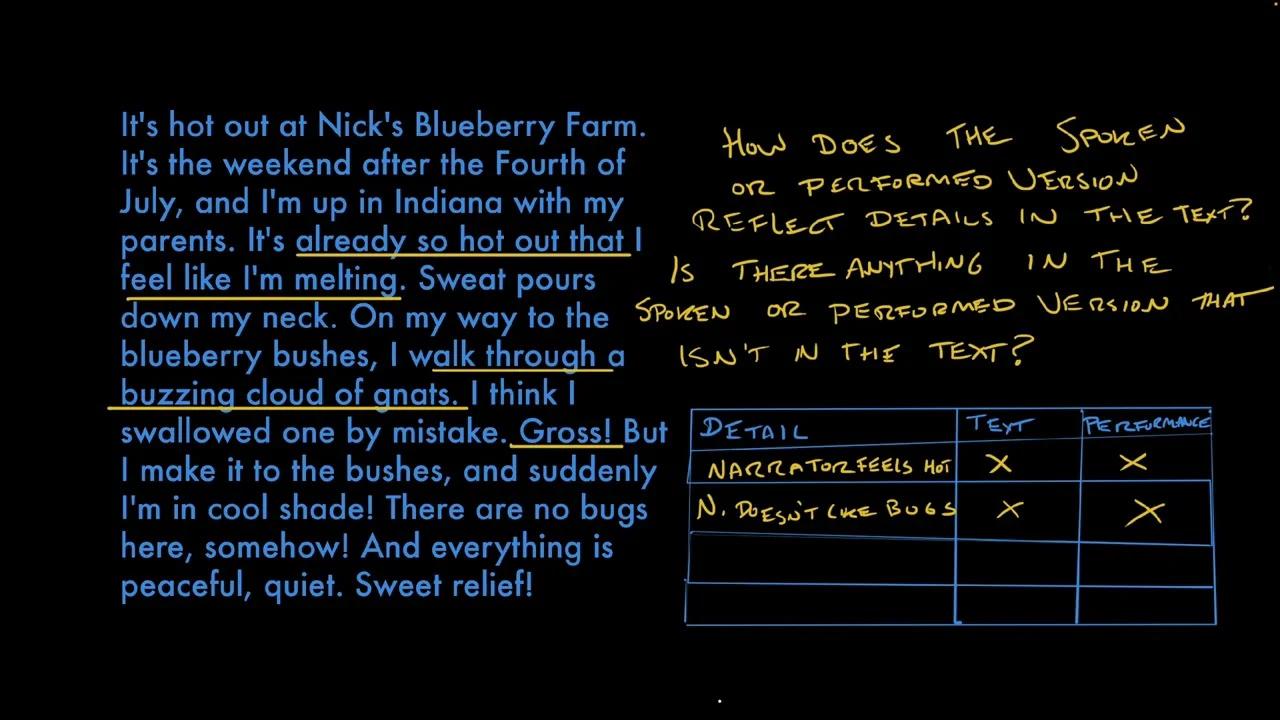 It's hot out at Nick's Blueberry Farm.
It's the weekend after the Fourth of
July, and I'm up in Indiana with my
parents. It's already so hot out that I
feel like I'm melting. Sweat pours
down my neck. On my way to the
blueberry bushes, I walk through a
buzzing cloud of gnats. I think I
swallowed one by mistake. Gross! But
I make it to the bushes, and suddenly
I'm in cool shade! There are no bugs
here, somehow! And everything is
peaceful, quiet. Sweet relief!
HOW DOES THE SPOKEN
OR PERFORMED VERSION
REFLECT DETAILS IN THE TEXT?
IS THERE ANYTHING IN THE
SPOKEN OR PERFORMED VERSION THAT
ISN'T IN THE TEXT?
DETAIL TEXT PERFORMANCE
NARRATOR FEELS HOT X X
N. DOESN'T LIKE BUGS X X